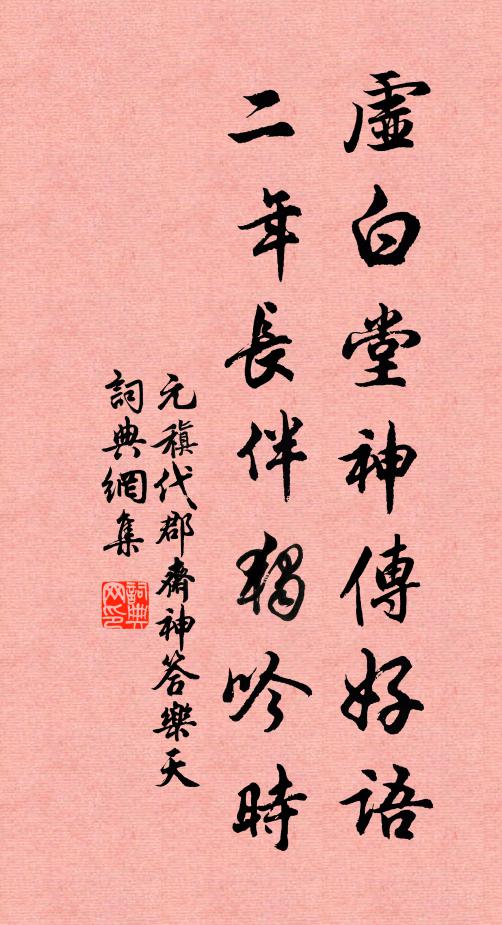 虛白堂神傳好語
二年長伴獨吟時
元稹代郡齋神答樂天
詞典網集
詞典網印